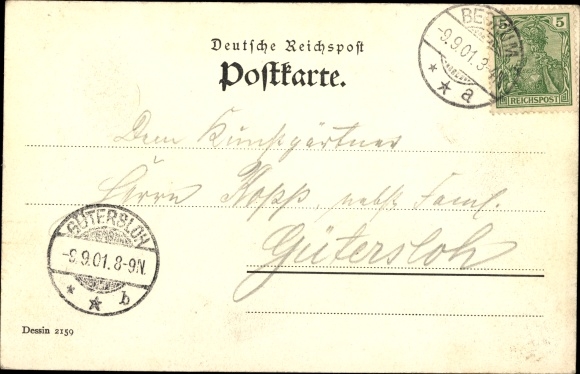 Deutsche Reichspost
Postkarte.
-9.9.01.3-
a
5
REICHSPOST
Dem Kunstgärtner
Herrn Kopp, nebst Faml.
Gütersloh
GÜTERSLOH
-9.9.01.8-9N.
b
Dessin 2159